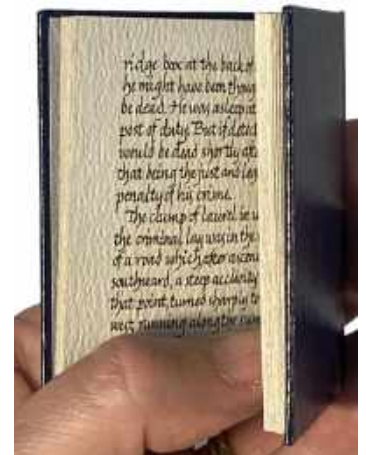 ridge box at the back of
he might have been thoug
be dead. He was asleep at
post of duty. But if detec
would be dead shortly aft
that being the just and leg
penalty of his crime.
The clump of laurel in w
the criminal lay was in the
of a road which after ascen
southward, a steep acclivity
that point turned sharply to
west, running along the sum